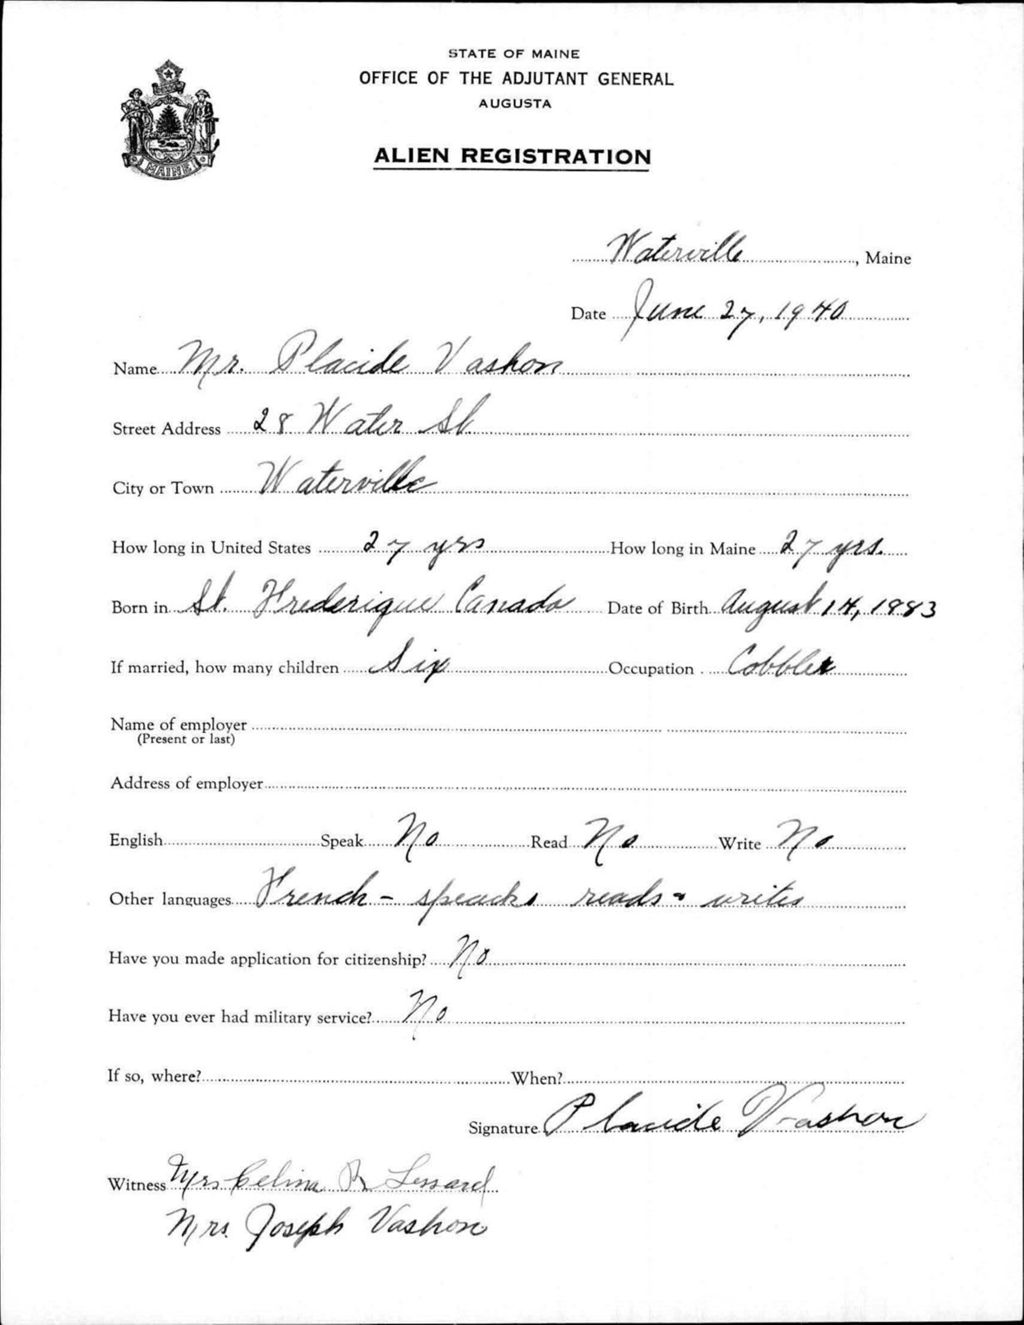 STATE OF MAINE
OFFICE OF THE ADJUTANT GENERAL
AUGUSTA
ALIEN REGISTRATION
MAINE
Waterville, Maine
Date June 27, 1940
Name Mr. Placide Vashon
Street Address 28 Water St.
City or Town Waterville
How long in United States 27 yrs How long in Maine 27 yrs.
Born in St. Frederique Canada Date of Birth August 14, 1883
If married, how many children Six Occupation Cobbler
Name of employer
(Present or last)
Address of employer
English Speak No Read No Write No
Other languages French - speacks reads - writes
Have you made application for citizenship? No
Have you ever had military service? No
If so, where? When?
Signature Placide Vashon
Witness Mrs Celina R Lessard
Mrs. Joseph Vashon